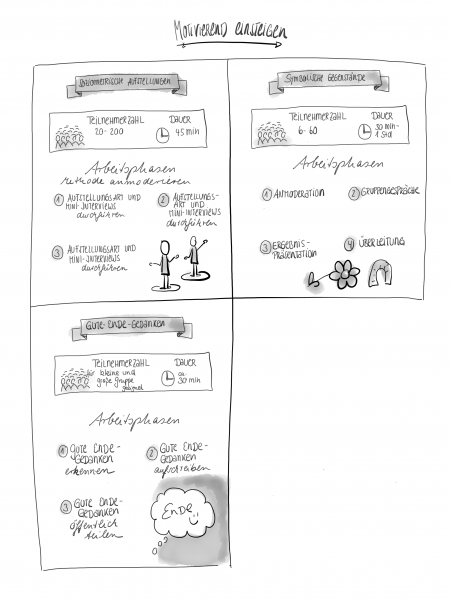 Motivierend einsteigen
Soziometrische Aufstellungen
Teilnehmerzahl
20-200
Dauer
45 min
Arbeitsphasen
Methode anmoderieren
1 Aufstellungsart und
Mini-Interviews
durchführen
2 Aufstellungs-
art und
Mini-Interviews
durchführen
3 Aufstellungsart und
Mini-Interviews
durchführen
Symbolische Gegenstände
Teilnehmerzahl
6-60
Dauer
30 min-
1 Std
Arbeitsphasen
1 Anmoderation
2 Gruppengespräche
3 Ergebnis-
präsentation
4 Überleitung
Gute-Ende-Gedanken
Teilnehmerzahl
für kleine und
große Gruppe
Dauer
ca.
30 min
Arbeitsphasen
1 Gute Ende-
Gedanken
erkennen
2 Gute Ende-
Gedanken
aufschreiben
3 Gute Ende-
Gedanken
öffentlich
teilen
Ende